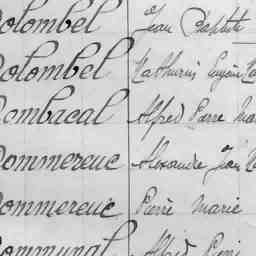 Colombel Jean Baptiste
Colombel Mathurin Eugène
Combacal Alfred Pierre
Commereuc Alexandre Jean
Commereuc Pierre Marie
Communal Alfred